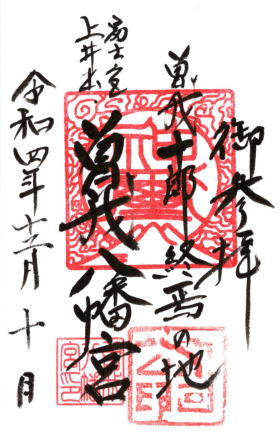 御参拝
曽我十郎終焉の地
富士宮
上井出
曽我八幡宮
令和四年十二月十日